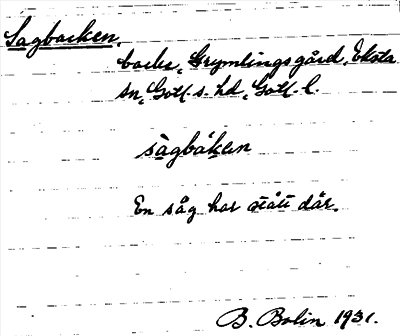 Sagbacken,
backe, Grymlings gård, Eksta
sn, Gotl. s. hd, Gotl. l.
sàgbákein
En såg har stått där.
B. Bolin 1931.